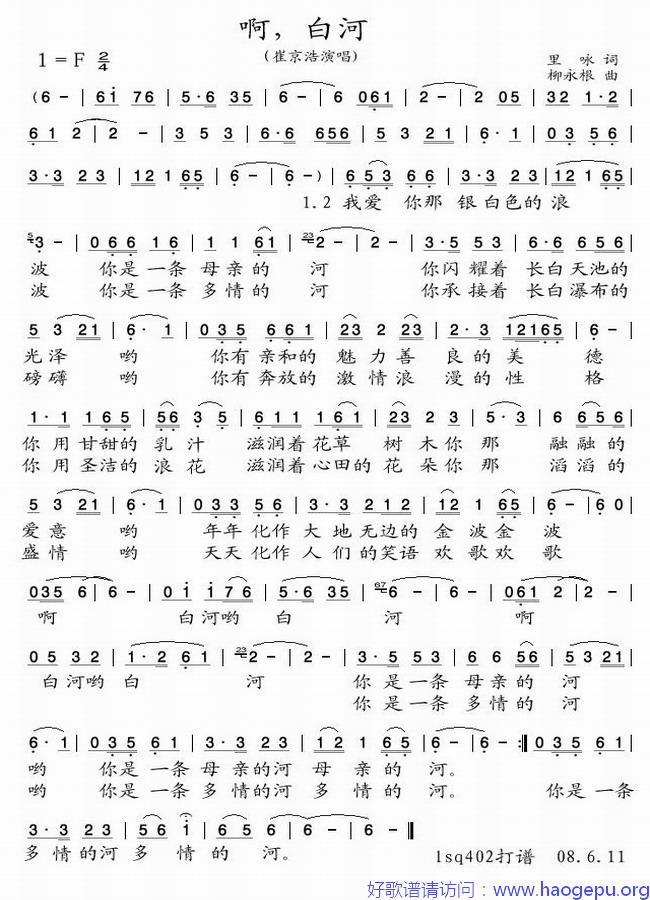 啊，白河
1=F 2/4
(崔京浩演唱)
里 咏 词
柳永根 曲
(6 - | 6i 76 | 5·6 35 | 6 - | 6 - | 6 061 | 2 - | 2 05 | 32 1·2 |
61 2 | 2 - | 3 5 3 | 6·6 656 | 5 3 21 | 6· 1 | 03 56 |
3·3 23 | 12 1 65 | 6 - | 6 - ) | 653 66 | 3·3 223 | 121 65 |
1.2 我爱 你那 银白色的 浪
5 3 - | 066 16 | 1 1 61 | 23 2 - | 2 - | 3·5 53 | 6·6 656 |
波 你是一条 母亲的 河 你闪耀着 长白天池的
波 你是一条 多情的 河 你承接着 长白瀑布的
5 3 21 | 6· 1 | 035 661 | 23 2 23 | 2·3 12165 | 6 - |
光泽 哟 你有亲和的 魅力善 良的美 德
磅礴 哟 你有奔放的 激情浪 漫的性 格
1·1 165 | 56 3 5 | 611 161 | 23 2 3 | 5·3 | 6 656 |
你用甘甜的 乳汁 滋润着花草 树木你那 融融的
你用圣洁的 浪花 滋润着心田的花 朵你那 滔滔的
5 3 21 | 6· 1 | 033 56 | 3·3 212 | 12 1 65 | 6 - | 60 |
爱意 哟 年年化作 大地无边的 金波金 波
盛情 哟 天天化作 人们的笑语 欢歌欢 歌
035 6 | 6 - | 0i i76 | 5·6 35 | 67 6 - | 6 - | 061 2 | 2 - |
啊 白河哟 白 河 啊
05 32 | 1·2 61 | 23 2 - | 2 - | 3·5 53 | 6 6 56 | 5 3 21 |
白河哟 白 河 你是一条 母亲的 河
你是一条 多情的 河
6·1 | 035 61 | 3·3 23 | 12 1 65 | 6 - | 6 - :‖ 035 61 |
哟 你是一条 母亲的河 母亲的 河。
哟 你是一条 多情的河 多情的 河。 你是一条
3·3 23 | 56 i | 65 6 | 6 - | 6 - ‖
多情的河 多情的 河。
lsq402打谱 08.6.11
好歌谱请访问：www.haogepu.org